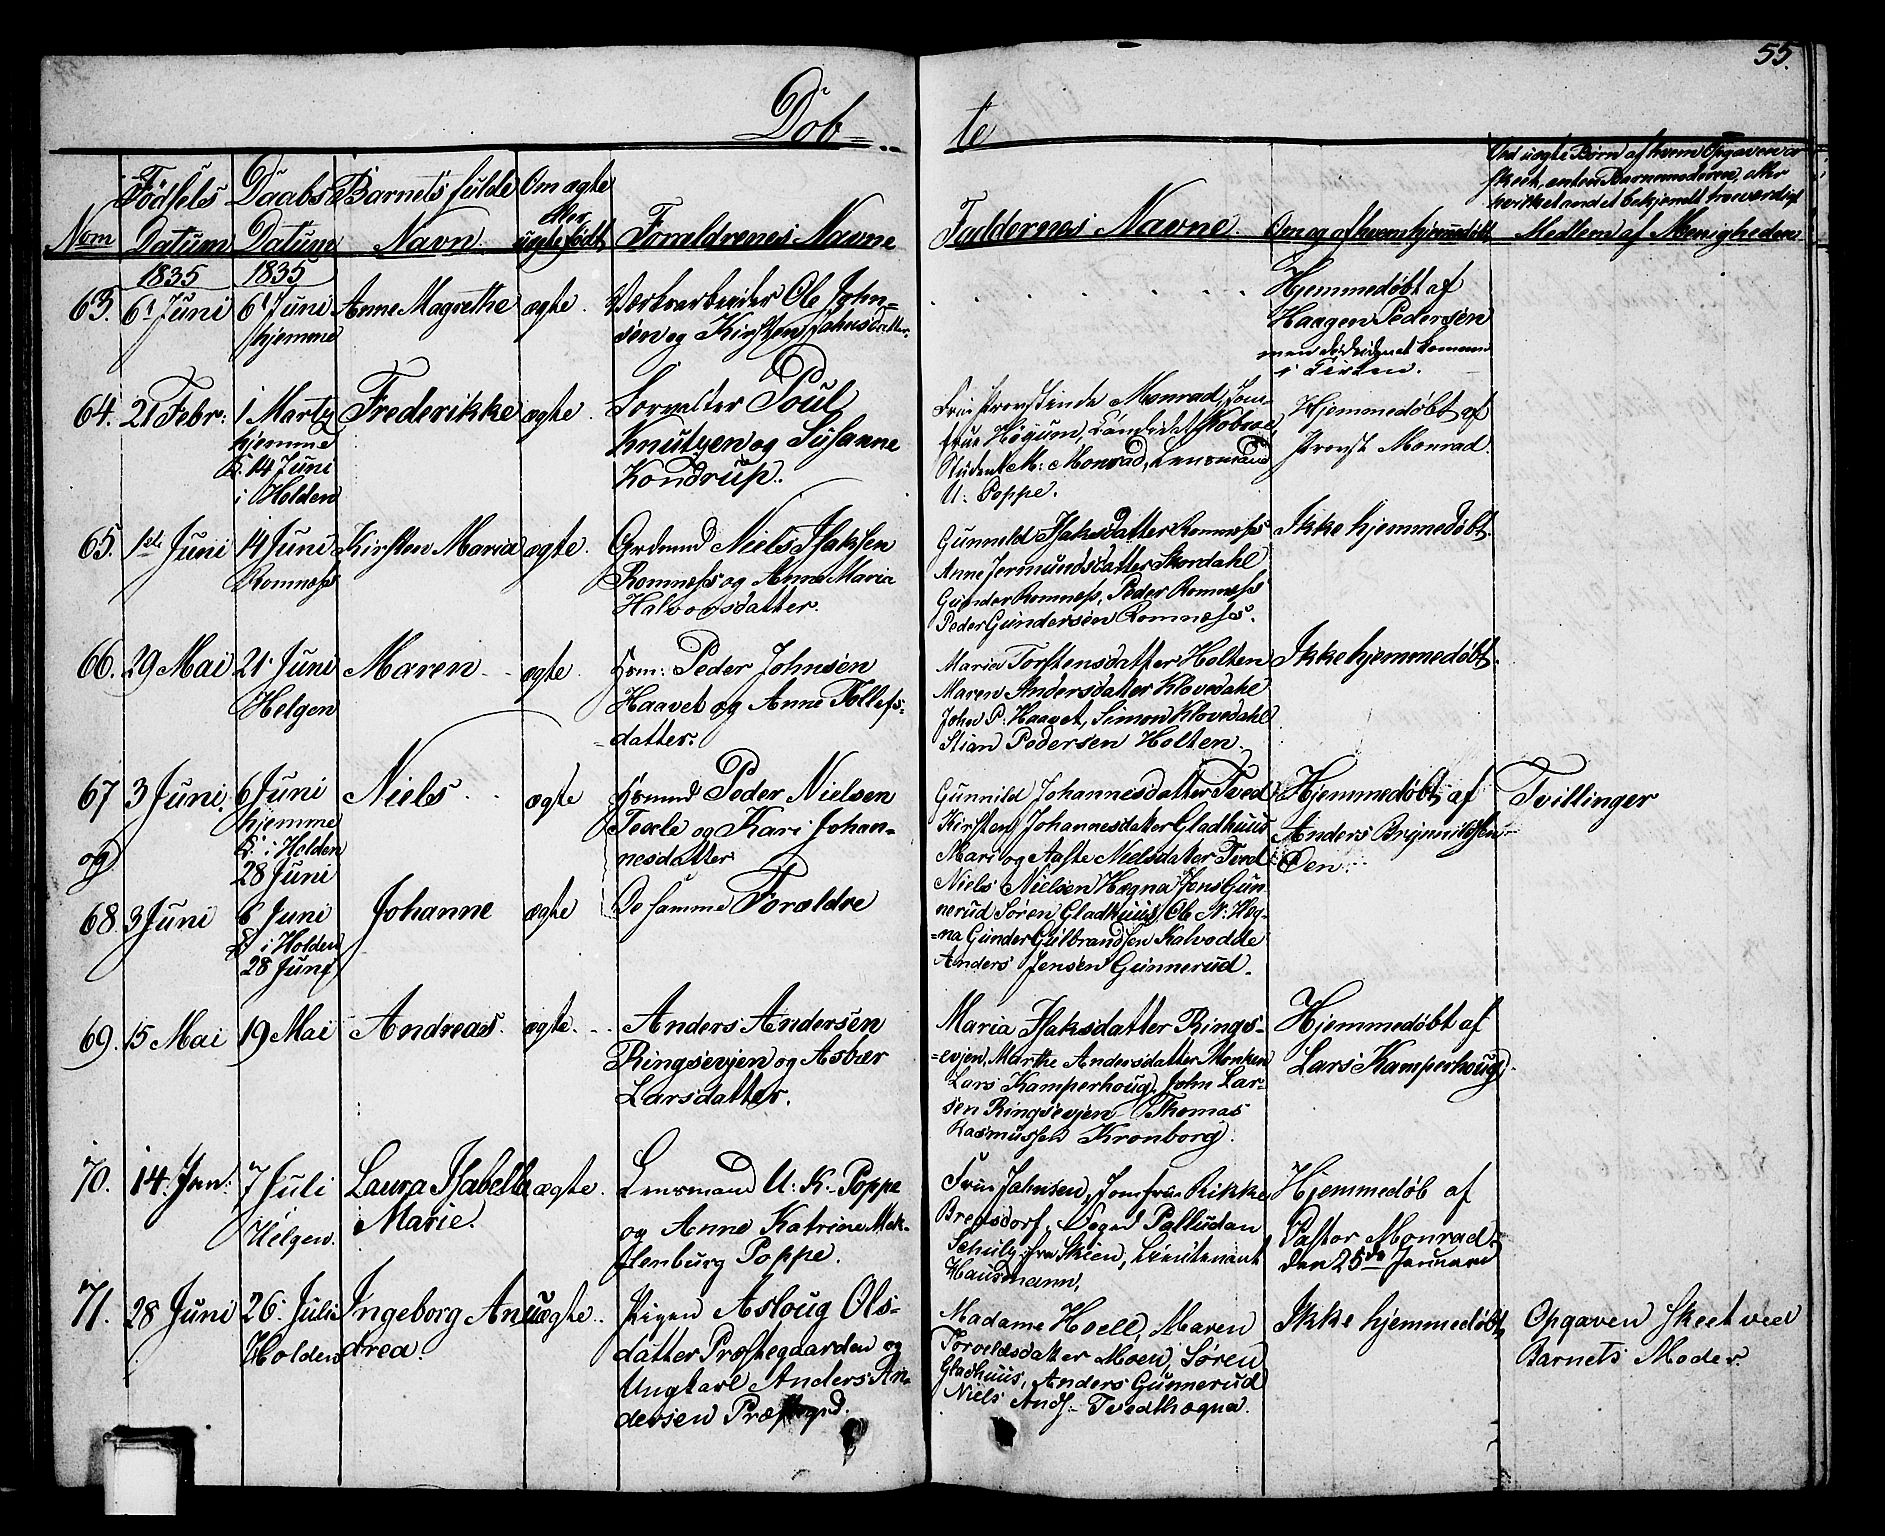 55.
Döb=
te
Nom
Födsels
Datum
Daabs
Datum
Barnets fulde
Navn
Om ægte
eller
uægte født
Forældrenes Navne
Faddernes Navne.
Om og af hvem hjemmedøbt
Ved uægte Børn af hvem Opgaven er
skeet, enten Barnemoderen eller
hvilket andet bekjendt troeværdigt
Medlem af Menigheden
1835
1835
63. 6t Juni
6t Juni
hjemme
Anne Magrethe
ægte.
Værkarbeider Ole John=
sen og Kirsten Johnsdatter.
Hjemmedøbt af
Haagen Pedersen
i Kirken.
64. 21 Febr:
1 Marts
hjemme
14 Juni
i Holden
Frederikke
ægte.
Forvalter Poul
Knutzen og Susanne
Kondrup.
Frue Provstinde Monrad, Jom-
frue Høgum, Candidat
Student M: Monrad, Lensmand
U. Poppe.
Hjemmedøbt af
Provst Monrad.
65. 1ste Juni
14 Juni
Romness
Kirsten Maria
ægte.
Niels Isaksen
Romness og Anne Maria
Halvorsdatter.
Gunneld Isaksdatter Romness
Anne Jermundsdatter Skordahl
Gunder Romness, Peder Romness
Peder Gundersen Romness.
Ikke hjemmedøbt.
66. 29 Mai
21. Juni
Helgen
Maren
ægte.
Peder Johnsen
Haavet og Anne Tollefs=
=datter.
Maria Torstensdatter Holten
Maren Andersdatter Klovedahl
John P. Haavet, Simon Klovedahl
Stian Pedersen Holten.
Ikke hjemmedøbt.
67
og
3 Juni.
6 Juni
hjemme
i Holden
28 Juni
Niels
ægte
Peder Nielsen
og Kari Johan=
nesdatter
Gunnild Johannesdatter Tved
Kirsten Johannesdatter Gladhuus
Mari og Aaste Nielsdatter Tved
Niels Nielsen Hægna Jens Gun-
nerud Søren Gladhuus, Ole N: Heg-
=na Gunder Gulbrandsen Kalvodde
Anders Jensen Gunnerud.
Hjemmedøbt af
Anders Brynnildsen
Øen.
Tvillinger
68. 3 Juni
6 Juni
i Holden
28 Juni
Johanne
ægte
De samme Forældre
69. 15 Mai
19 Mai
Andreas.
ægte.
Anders Andersen
Ringsevjen og Asbær
Larsdatter.
Maria Isaksdatter Rings-
=evjen, Marthe Andersdatter Monken
Lars Kamperhoug, John Lar-
sen Ringsevjen Thomas
Rasmussen Kronborg.
Hjemmedøbt af
Lars Kamperhoug.
70. 14. Jan:
7 Juli
Helgen.
Laura Isabella
Marie.
ægte.
Lensmand U. K. Poppe
og Anne Katrine Mek-
lenburg Poppe.
Frue Jahnsen, Jomfrue Rikke
Bregsdorf, Palludan
Schulz fra Skien, Lieutenant
Hausmann.
Hjemmedøb af
Pastor Monrad.
den 25de Januari
71. 28 Juni
26. Juli
Holden
Ingeborg An-
drea.
uægte.
Pigen Asloug Ols-
datter Præstegaarden og
Ungkarl Anders An-
dersen Præstegrd.
Madame Hoell, Maren
Torvelsdatter Moen, Søren
Gladhuus, Anders Gunnerud
Niels And: Tvedthægna.
Ikke hjemmedøbt,
Opgaven skeet ved
Barnets Moder.